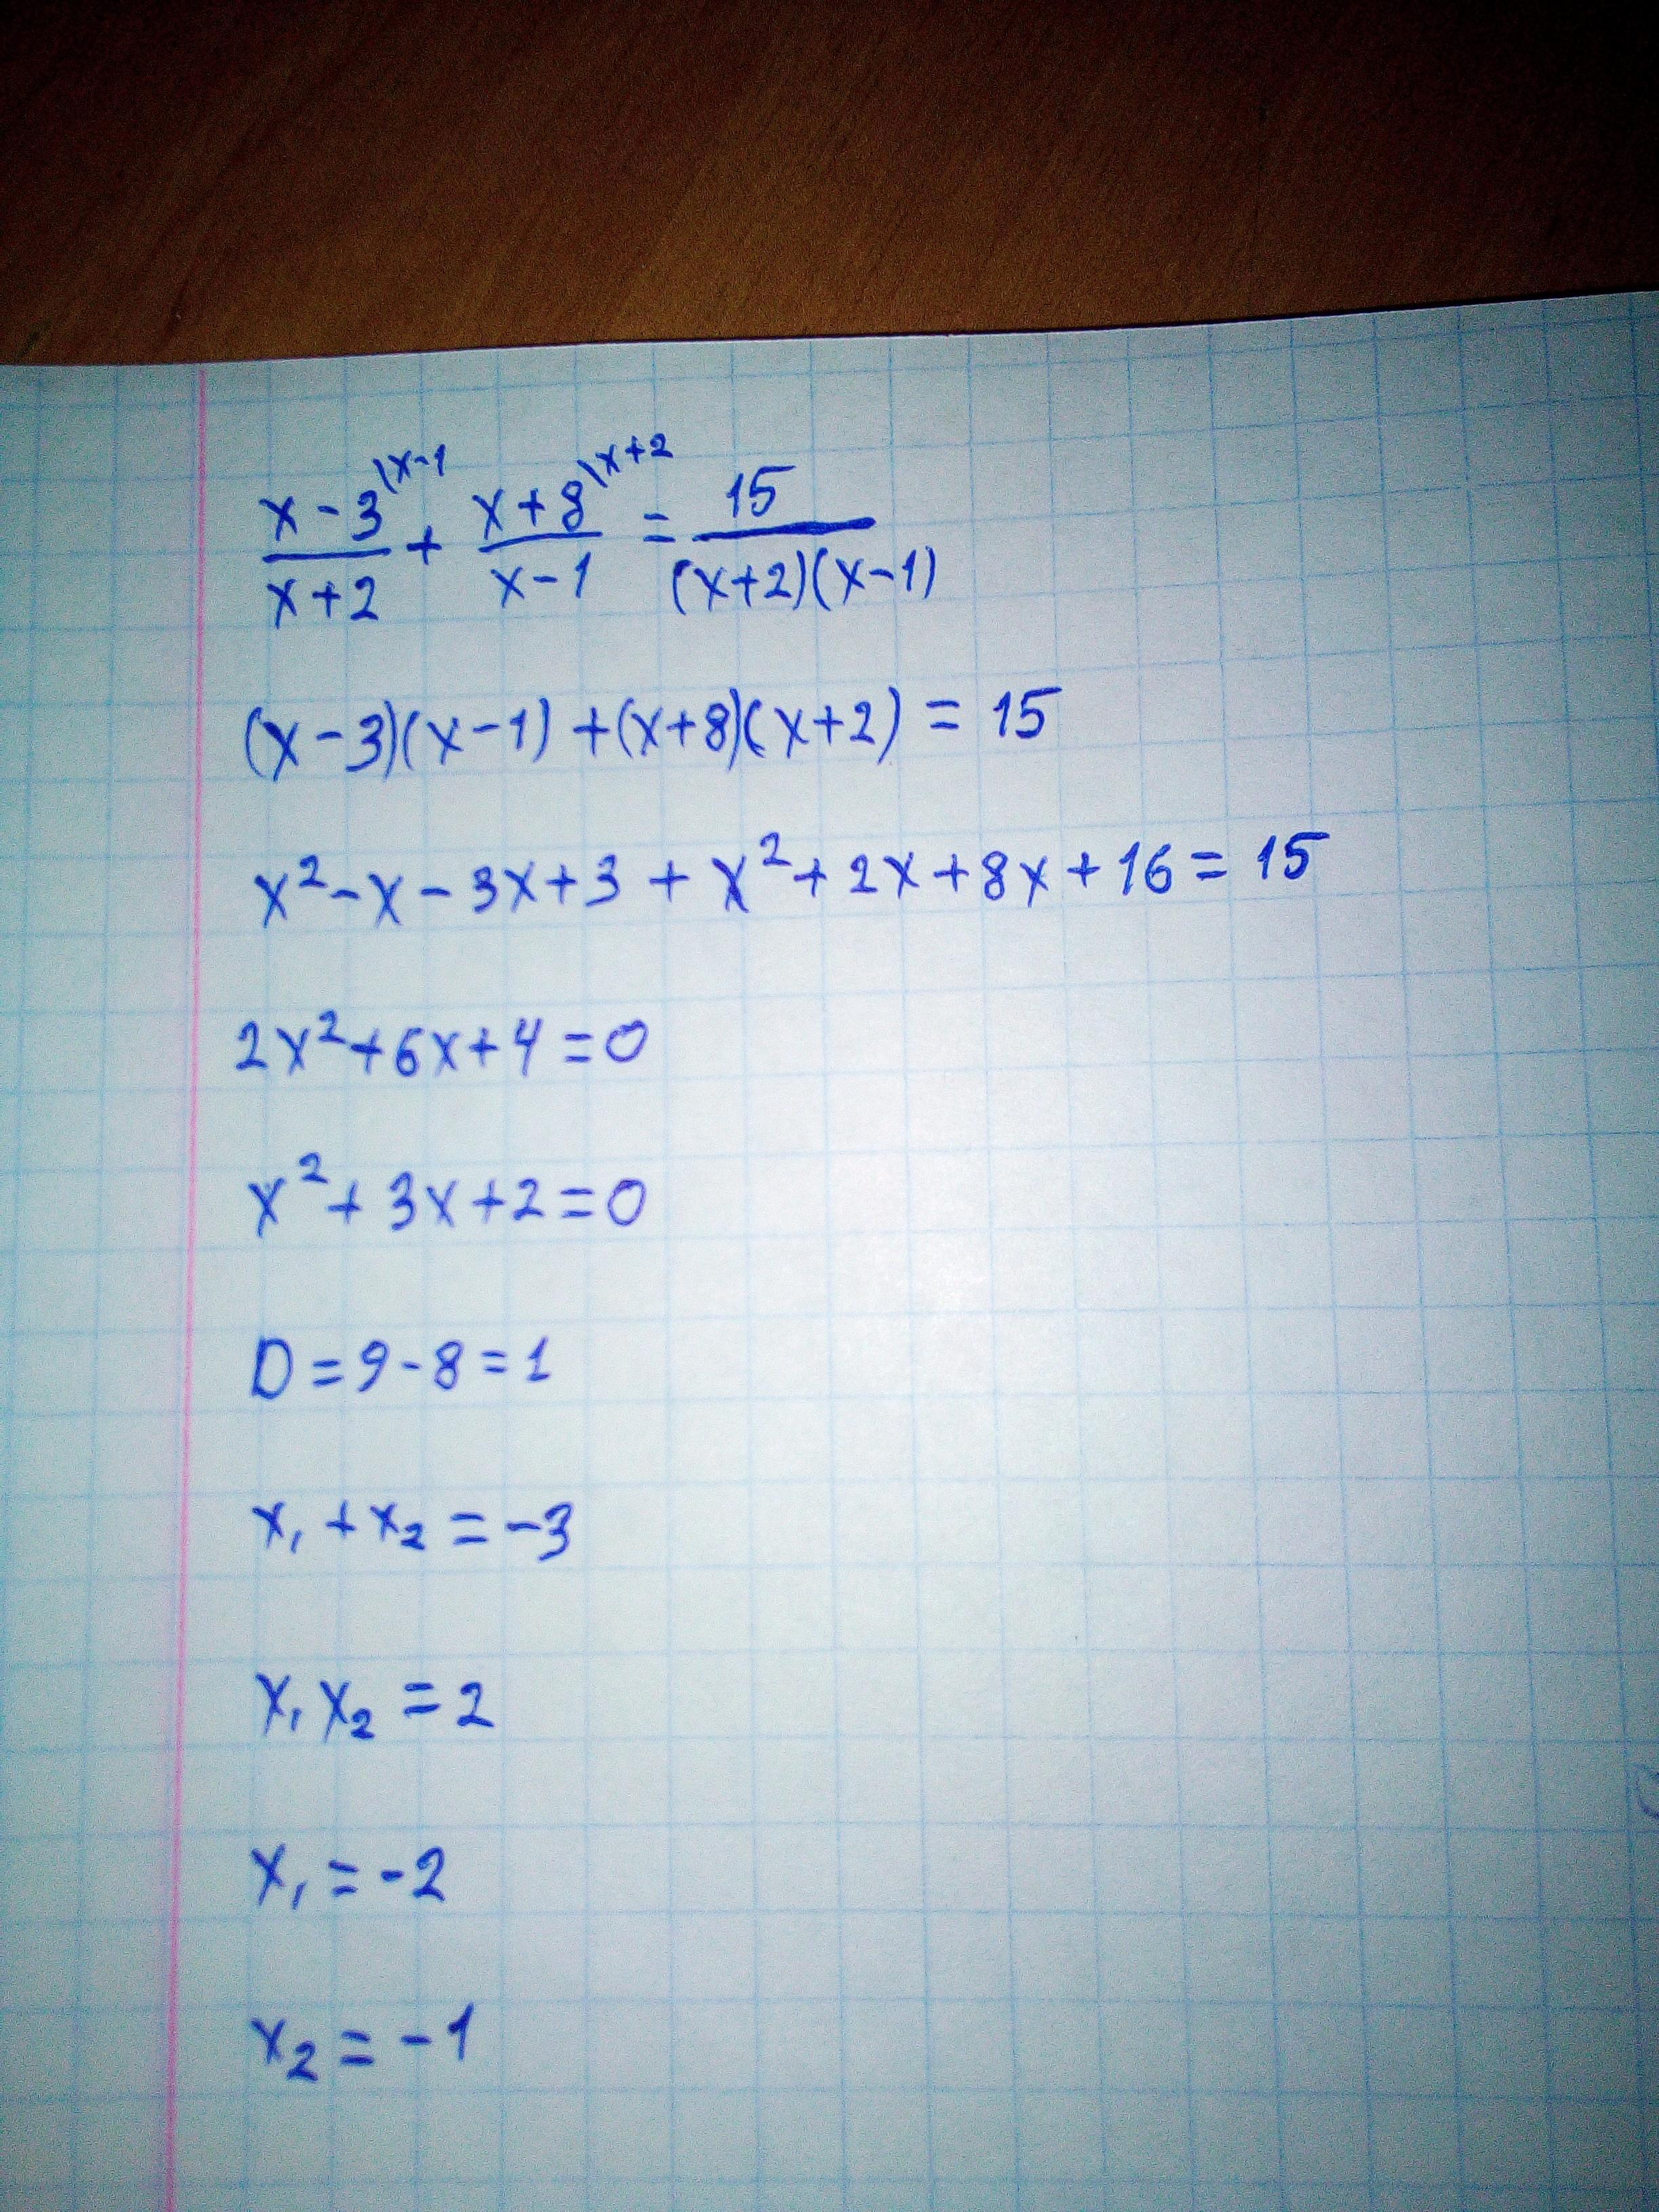 x-3^{\x-1}/x+2 + x+8^{\x+2}/x-1 = 15/(x+2)(x-1)
(x-3)(x-1)+(x+8)(x+2)=15
x²-x-3x+3+x²+2x+8x+16=15
2x²+6x+4=0
x²+3x+2=0
D=9-8=1
x₁+x₂=-3
x₁x₂=2
x₁=-2
x₂=-1